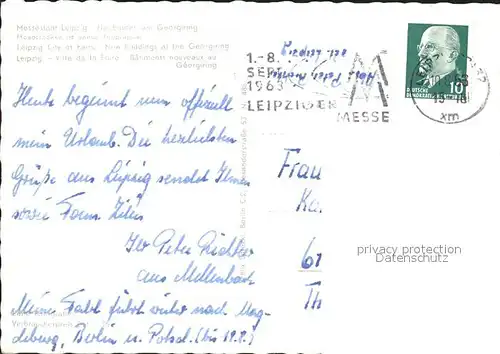 Messestadt Leipzig - Neubauten am Georgiring
Leipzig City of Fairs - New Buildings at the Georgiring
Leipzig - Ville de la Foire Bâtiments nouveaux au
Georgiring
1.-8.
SEPT.
1963
LEIPZIGER
MESSE
z.Zt. Leipzig
10
DEUTSCHE
DEMOKRATISCHE
xm
Heute beginnt nun offiziell
mein Urlaub. Die herzlichsten
Grüße aus Leipzig sendet Ihnen
sowie Fam.
Ihr Peter Richter
aus Mellenbach
Meine Fahrt führt weiter nach Mag-
deburg, Berlin u. Potsd. (bis 19.8.)
Frau
Ka
61
Th
privacy protection
AnsichtskartenCenter